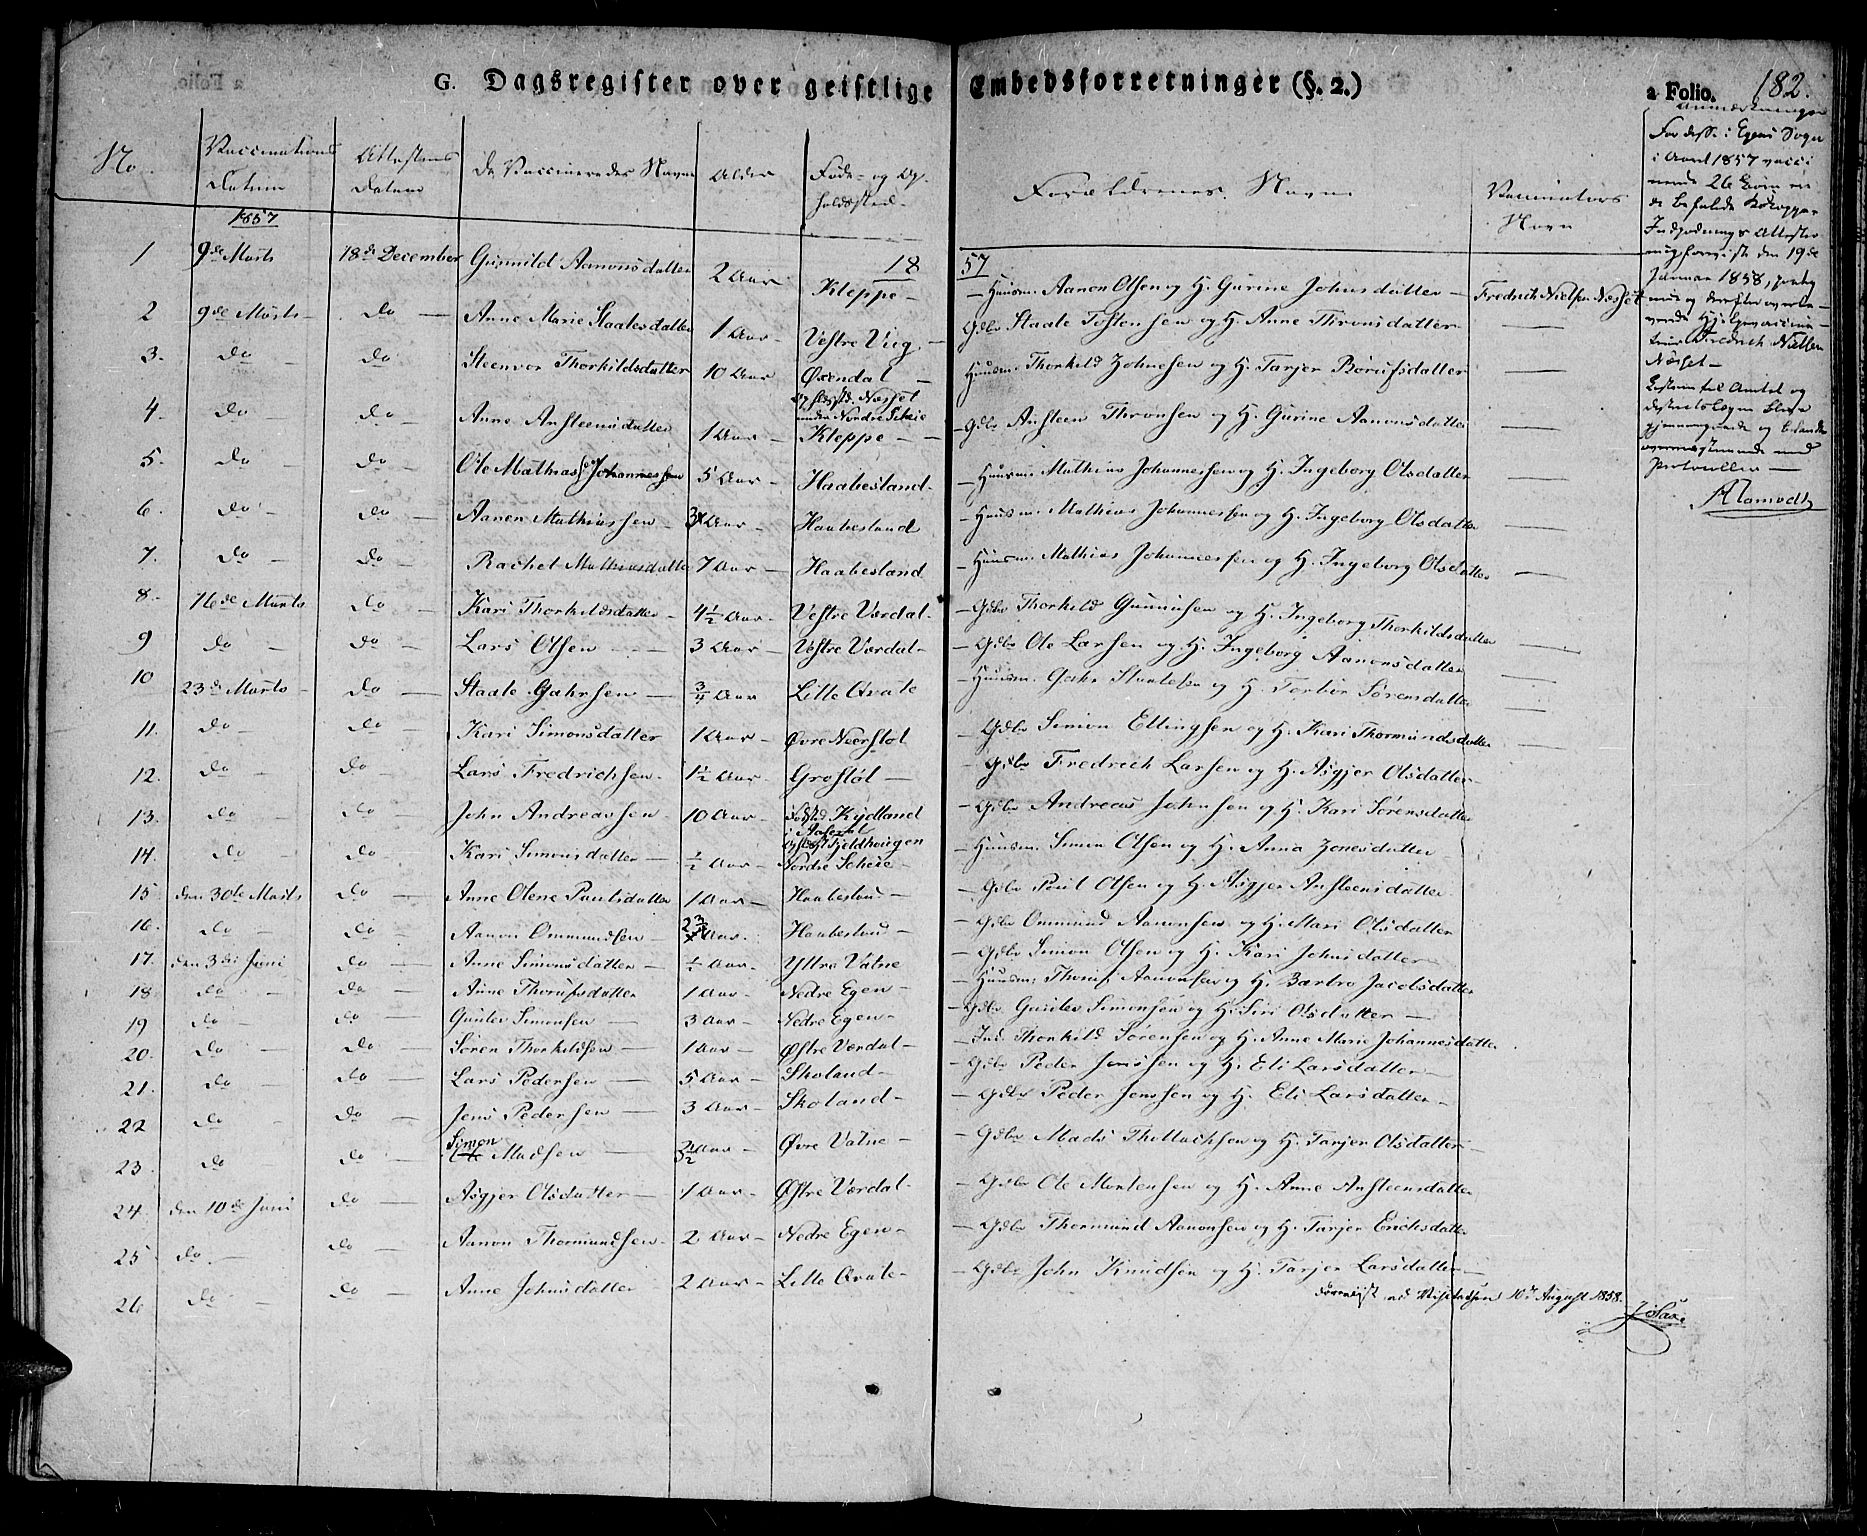 G. Dagsregister over geistlige Embedsforretninger (§. 2.) a Folio. 182.
No. Vaccinations Datum Attestens Datum De Vaccineredes Navne Alder Føde- og Opholdssted. Forældrenes Navne Vaccinators Navn Anmærkninger
1857 18 57
1 9de Marts 18de December Gunnild Aanonsdatter 2 Aar Kleppe – Huusm. Aanon Olsen og H. Gurine Johnsdatter – Fredrich Nielsen Næsset
2 9de Marts – do – Anne Marie Staalesdatter 1 Aar – Vestre Viig – Gdbr Staale Tostensen og H. Anne Thronsdatter –
3. do – do Steenvor Thorkildsdatter 10 Aar Øxendal – Huusm. Thorkild Johnsen og H. Tarjer Børufsdatter –
Opholdsstd. Næsset under Nordre Scheie
4. do – do – Anne Ansteensdatter 1 Aar – Kleppe – – Gdbr Ansteen Thronsen og H. Gurine Aanonsdatter –
5. do – do – Ole Mathias Johannessen 5 Aar – Haabesland – – Huusm. Mathias Johannessen og H. Ingeborg Olsdatter –
6. do – do – Aanen Mathiassen – 3 Aar – Haabesland – Huusm. Mathias Johannessen og H. Ingeborg Olsdatter –
7. do – do – Rachel Mathiasdatter 7 Aar – Haabesland – Huusm. Mathias Johannessen og H. Ingeborg Olsdatter –
8. 16de Marts do – Kari Thorkildsdatter – 4½ Aar – Vestre Værdal – – Gdbr Thorkild Gunnufsen og H. Ingeborg Thorkildsdatter –
9 do – do – Lars Olsen – – 3 Aar – Vestre Værdal – – Gdbr Ole Larsen og H. Ingeborg Aanonsdatter –
10 23de Marts – do – Staale Gahrsen – ¾ Aar Lille Qvale – Huusm. Gahr Staalesen og H. Torbor Sørensdatter –
11. do – do – Kari Simonsdatter 1 Aar – Øvre Neerstøl – Gdbr Simon Ellingsen og H. Kari Thormundsdatter –
12. do – do – Lars Fredrichsen – 1½ Aar – Grostøl – – Gdbr Fredrich Larsen og H. Asgjer Olsdatter –
13. do do – John Andreassen 10 Aar – Fødstd Kydland i Aaseral – Gdbr Andreas Johnsen og H. Kari Sørensdatter
Opholdsst Fjeldhougen
14. do – do – Kari Simonsdatter – ½ Aar – Nordre Scheie – – Huusm. Simon Olsen og H. Anna Jonesdatter –
15 den 30te Marts do – Anne Olene Paulsdatter 1 Aar – Haabesland – – Gdbr Paul Olsen og H. Asgjer Ansteensdatter
16. do – do – Aanon Ommundsen – 2¾ Aar. Haabesland – – Gdbr Ommund Aanonsen og H. Mari Olsdatter
17. den 3die Juni do – Anne Simonsdatter – ½ Aar – Yttre Vatne – Gdbr Simon Olsen og H. Kari Johnsdatter
18 do – do – Anne Thorufsdatter 1 Aar – Nedre Egen – – Huusm. Thoruf Aanonsen og H. Barbro Jacobsdatter
19 do – do – Gunlev Simonsen – 3 Aar – Nedre Egen – – Gdbr Gunlev Simonsen og H. Siri Olsdatter –
20. do – do – Søren Thorkildsen – 1 Aar – Østre Værdal – – Ind. Thorkild Sørensen og H. Anne Marie Johannesdatter
21. do do – Lars Pedersen – 5 Aar – Skoland – – Gdbr Peder Jenssen og H. Eli Larsdatter –
22 do – do – Jens Pedersen – 3 Aar – Skoland – – Gdbr Peder Jenssen og H. Eli Larsdatter –
23. do do – Simon Madsen – 3½ Aar – Øvre Vatne – – Gdbr Mads Thollachsen og H. Tarjer Olsdatter –
24. den 10de Juni do – Asgjer Olsdatter – 1 Aar – Østre Værdal – – Gdbr Ole Mortensen og H. Anne Ansteensdatter
25 do – do – Aanon Thormundsen – 2 Aar – Nedre Egen – – Gdbr Thormund Aanonsen og H. Tarjer Erichsdatter
26 do – do – Anne Johnsdatter 2 Aar – Lille Qvale – – Gdbr John Knudsen og H. Tarjer Larsdatter –
Foreviist ved Visitatsen 10de August 1858.
For disse i Egens Sogn
i Aaret 1857 vacci
nerede 26 Børn er
de befalede Kokopper
Indpodnings Attester
mig foreviist den 19de
Januar 1858,
Fredrich Nielsen
Næsset –
gjennemgaaede og befundne
overeensstemmende med
Protocollen –